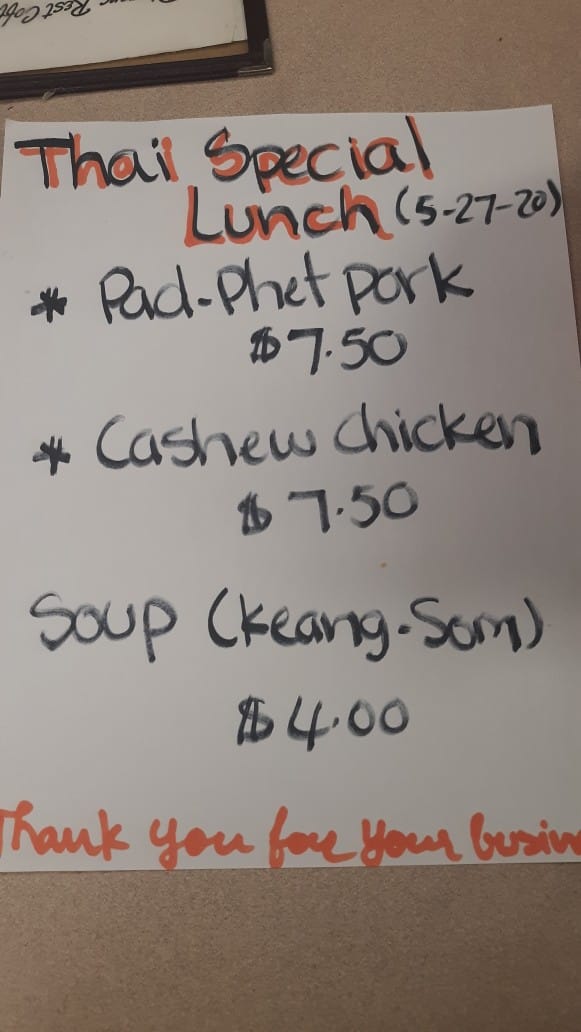 Rest
Thai Special
Lunch (5-27-20)
* Pad-Phet Pork
$7.50
* Cashew Chicken
$7.50
Soup (Keang-Som)
$4.00
Thank you for your busin